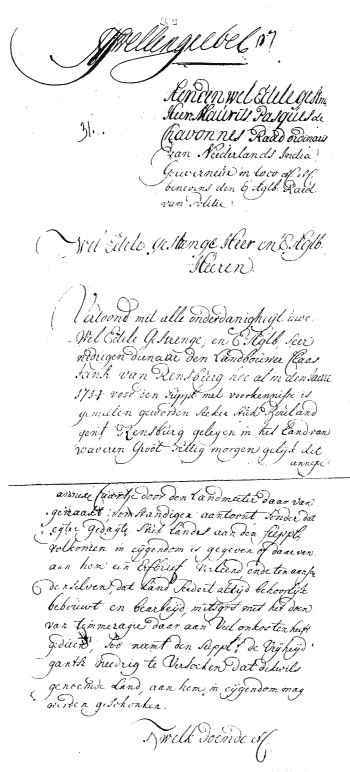 Swellengrebel
31.
Aenden wel Edele gestr.
Heer Mauris Pasques de
Chavonnes Raad ordinaris
van Nederlands India
Gouverneur in loco
benevens den E. Agtb. Raad
van Politie.
Wel Edele gestrenge Heer en E. Agtb.
Heeren
Vertoond met alle onderdanigheijt uwe
Wel Edele Gestrenge, en E. Agtb. seer
den Landbouwer Claas
van Rensburg hoe al in den Jaare
1714 voor den Supplt. met voorkennisse is
gemeten geworden seker stuk
gent. Rensburg gelegen in het Land van
waveren Groot sestig morgen gelijk dit
annexe
annexe Caartje door den Landmeter daar van
gemaakt aantoont sonder dat
egter gedagte stuk Landes aan den Supplt.
volkomen in eijgendom is gegeven of daar van
aan hem een Erfbrief verleend ende ten aansien
denselven dat Land sedert altijd behoorlijk
bebouwt en bearbeijd mitsgrs. met het doen
van timmeragie daar aan veel onkosten heeft
gedaen, Soo neemt den Supplt. de Vrijheijd
gantsch needrig te Versoeken dat dikwils
genoemde Land, aan hem, in eijgendom mag
werden geschonken.
'Twelk doende &c.